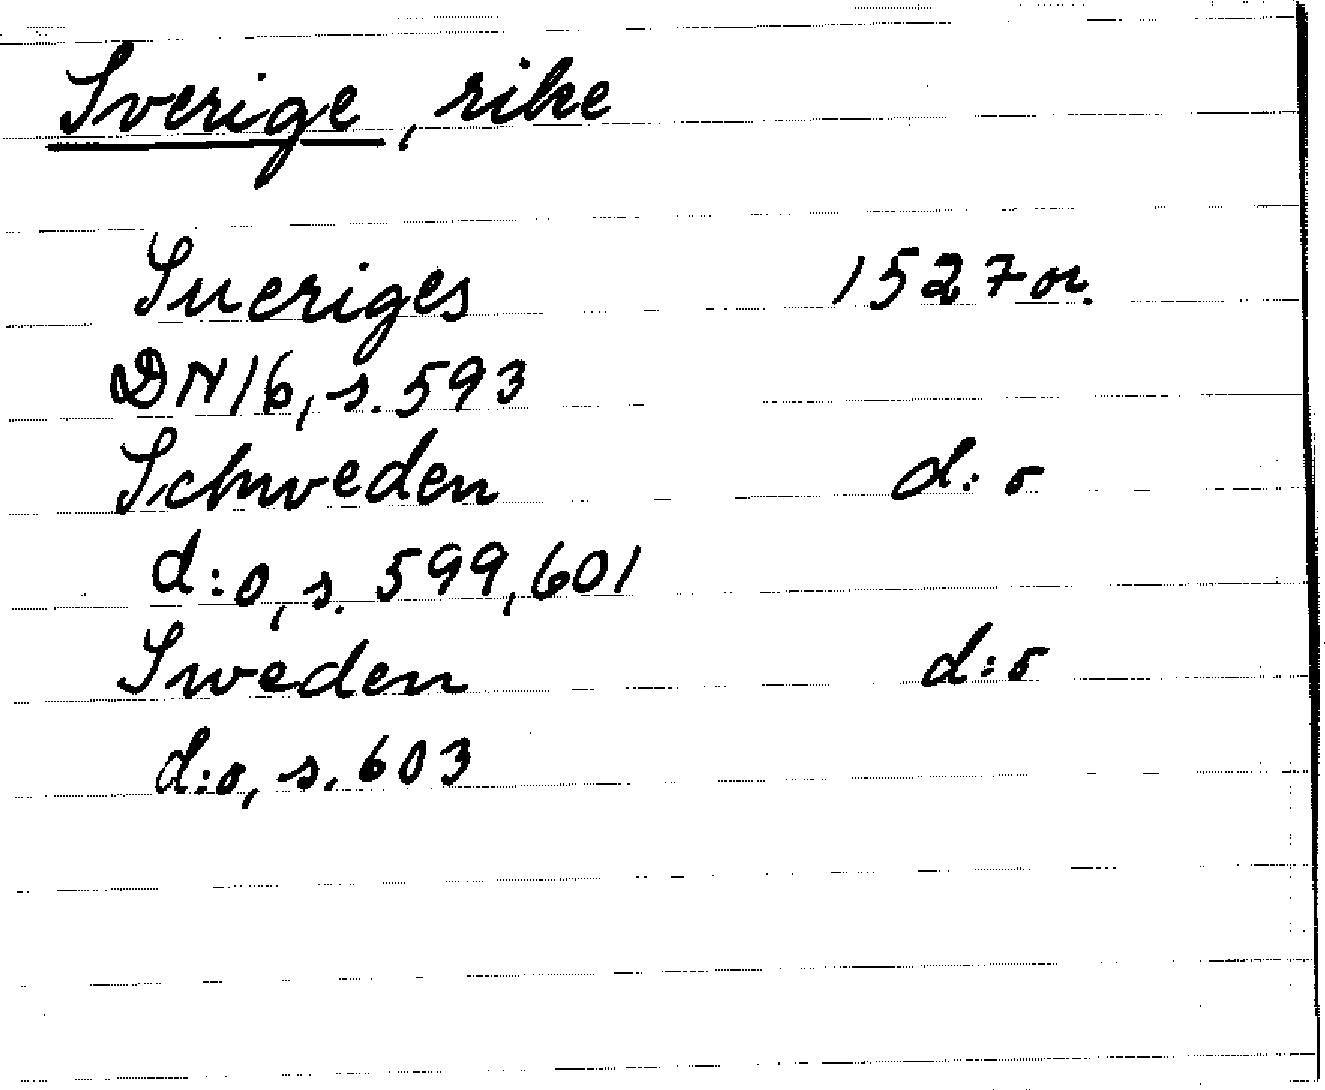 Sverige, rike
Sueriges 1527 or.
DN 16, s. 593
Schweden d:o
d:o, s. 599, 601
Sweden d:o
d:o, s. 603